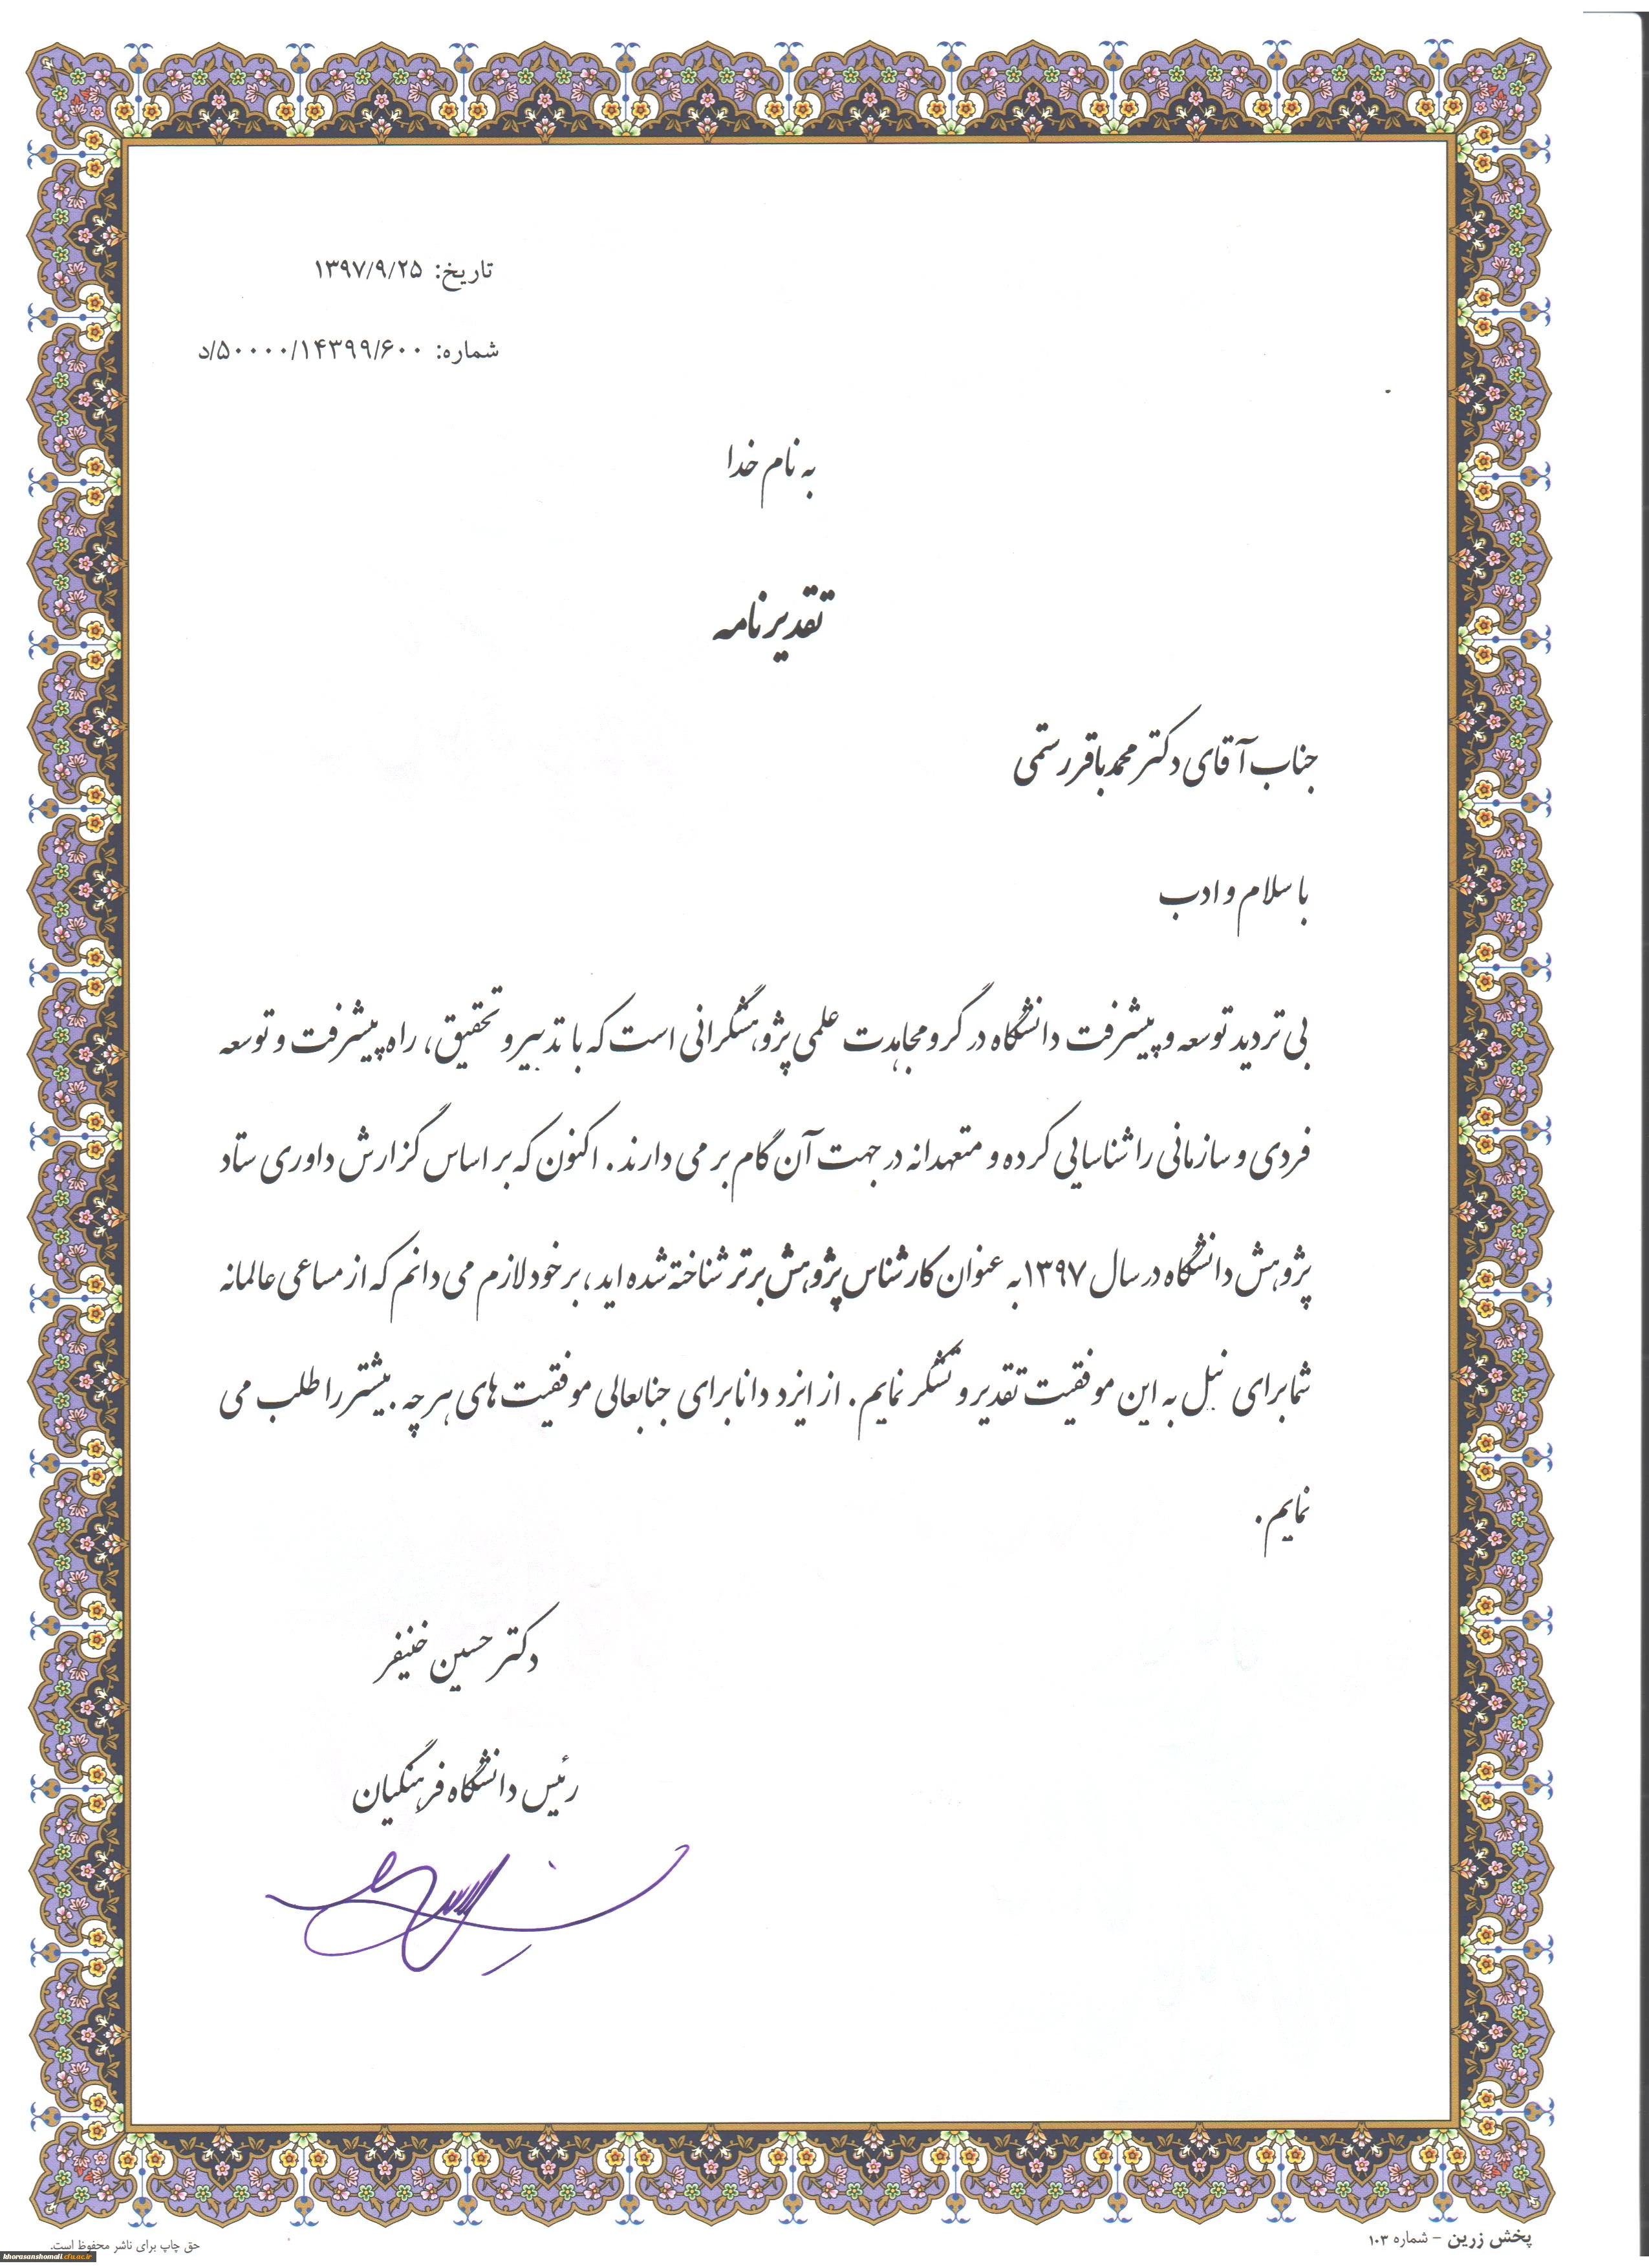 تاریخ: ۱۳۹۷/۹/۲۵
شماره: ۵۰۰۰۰/۱۴۳۹۹/۶۰۰/د
به نام خدا
تقدیرنامه
جناب آقای دکتر محمدباقر رستمی
با سلام و ادب
بی تردید توسعه و پیشرفت دانشگاه در گرو مجاهدت علمی پژوهشگرانی است که با تدبیر و تحقیق، راه پیشرفت و توسعه
فردی و سازمانی را شناسایی کرده و متعهدانه در جهت آن گام بر می دارند. اکنون که بر اساس گزارش داوری ستاد
پژوهش دانشگاه در سال ۱۳۹۷ به عنوان کارشناس پژوهش برتر شناخته شده اید، بر خود لازم می دانم که از مساعی عالمانه
شما برای نیل به این موفقیت تقدیر و تشکر نمایم. از ایزد دانا برای جنابعالی موفقیت های هر چه بیشتر را طلب می
نمایم.
دکتر حسین خنیفر
رئیس دانشگاه فرهنگیان
پخش زرین – شماره ۱۰۳
حق چاپ برای ناشر محفوظ است.
khorasanshomali.cfu.ac.ir